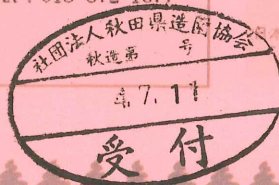 社団法人秋田県造園協会
秋造第 号
4.7.11
受付